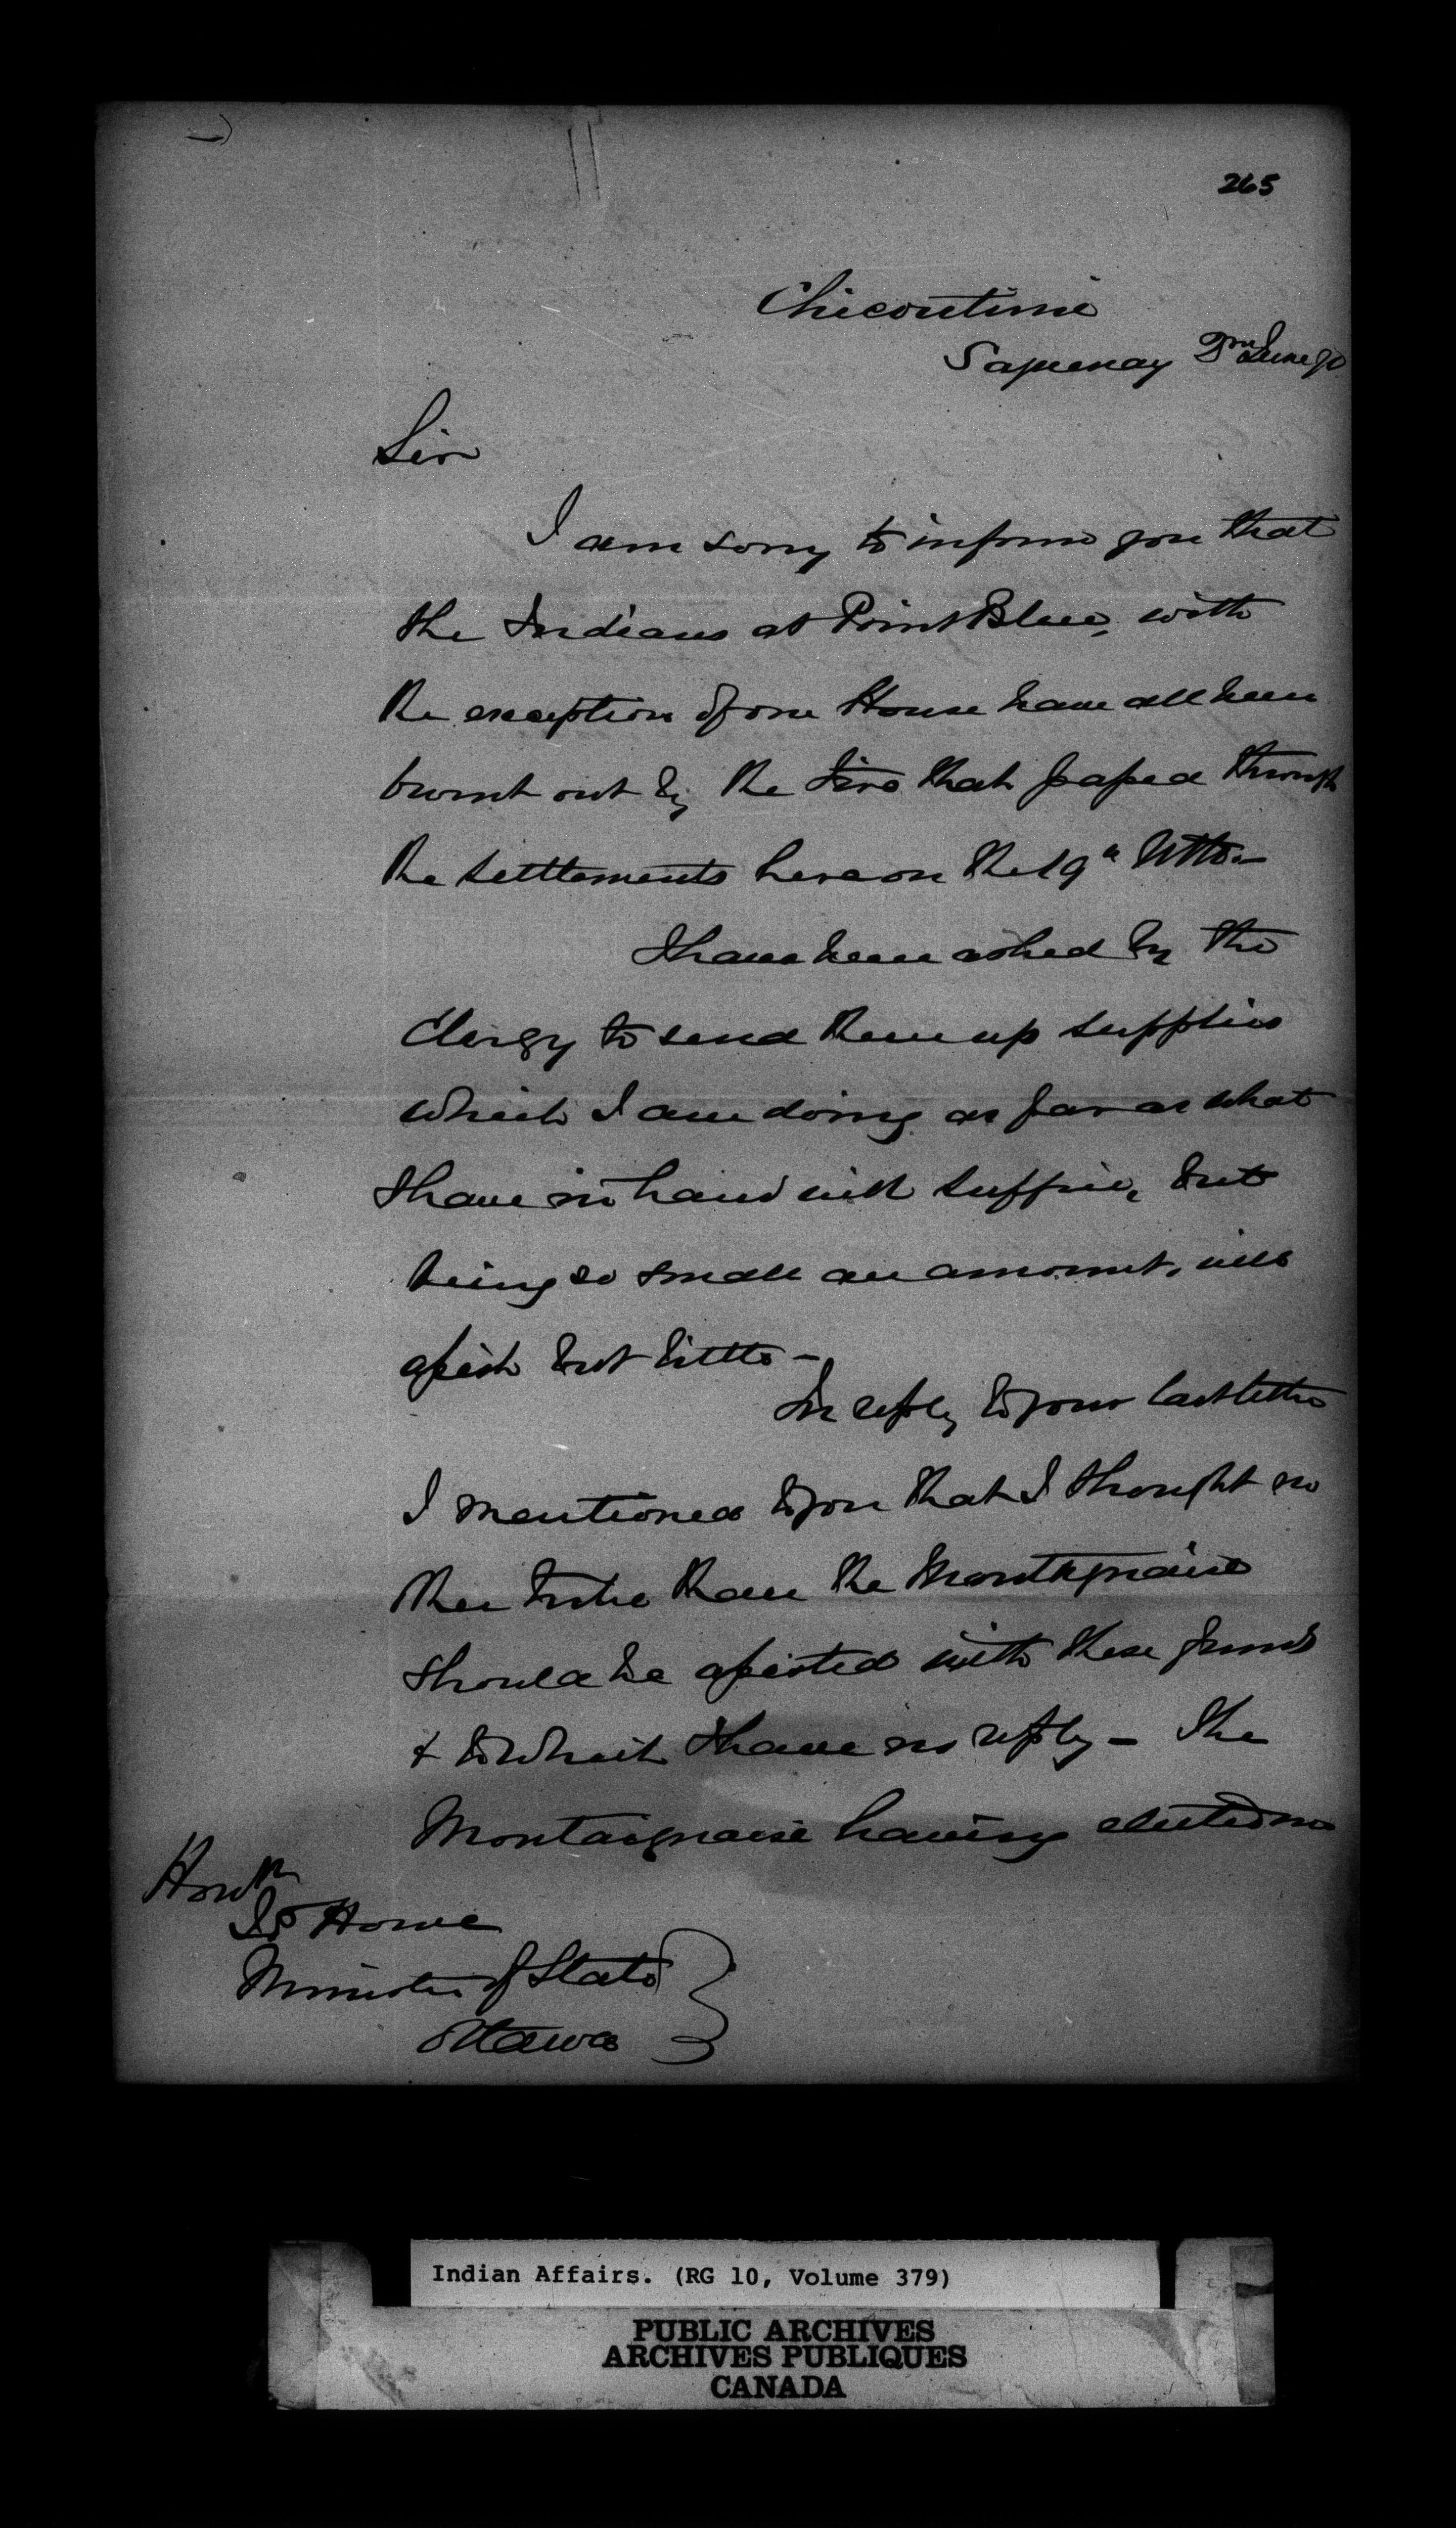 265
Chicoutimi
Saguenay June 70
Sir
I am sorry to inform you that
the Indians at Point Blue, with
the exception of one House have all been
burnt out by the Fire that passed through
the settlements here on the 19th Ulto -
I have been asked by the
Clergy to send them up supplies
which I am doing as far as what
I have in hand will suffice, but
being so small an amount, will
assist but little -
In reply to your last letter
I mentioned to you that I thought no
other tribe than the Montagnaise
should be assisted with these funds
& to which I have no reply - The
Montaignaise having elected no
Honble
Js Howe
Minister of State
Ottawa
Indian Affairs. (RG 10, Volume 379)
PUBLIC ARCHIVES
ARCHIVES PUBLIQUES
CANADA